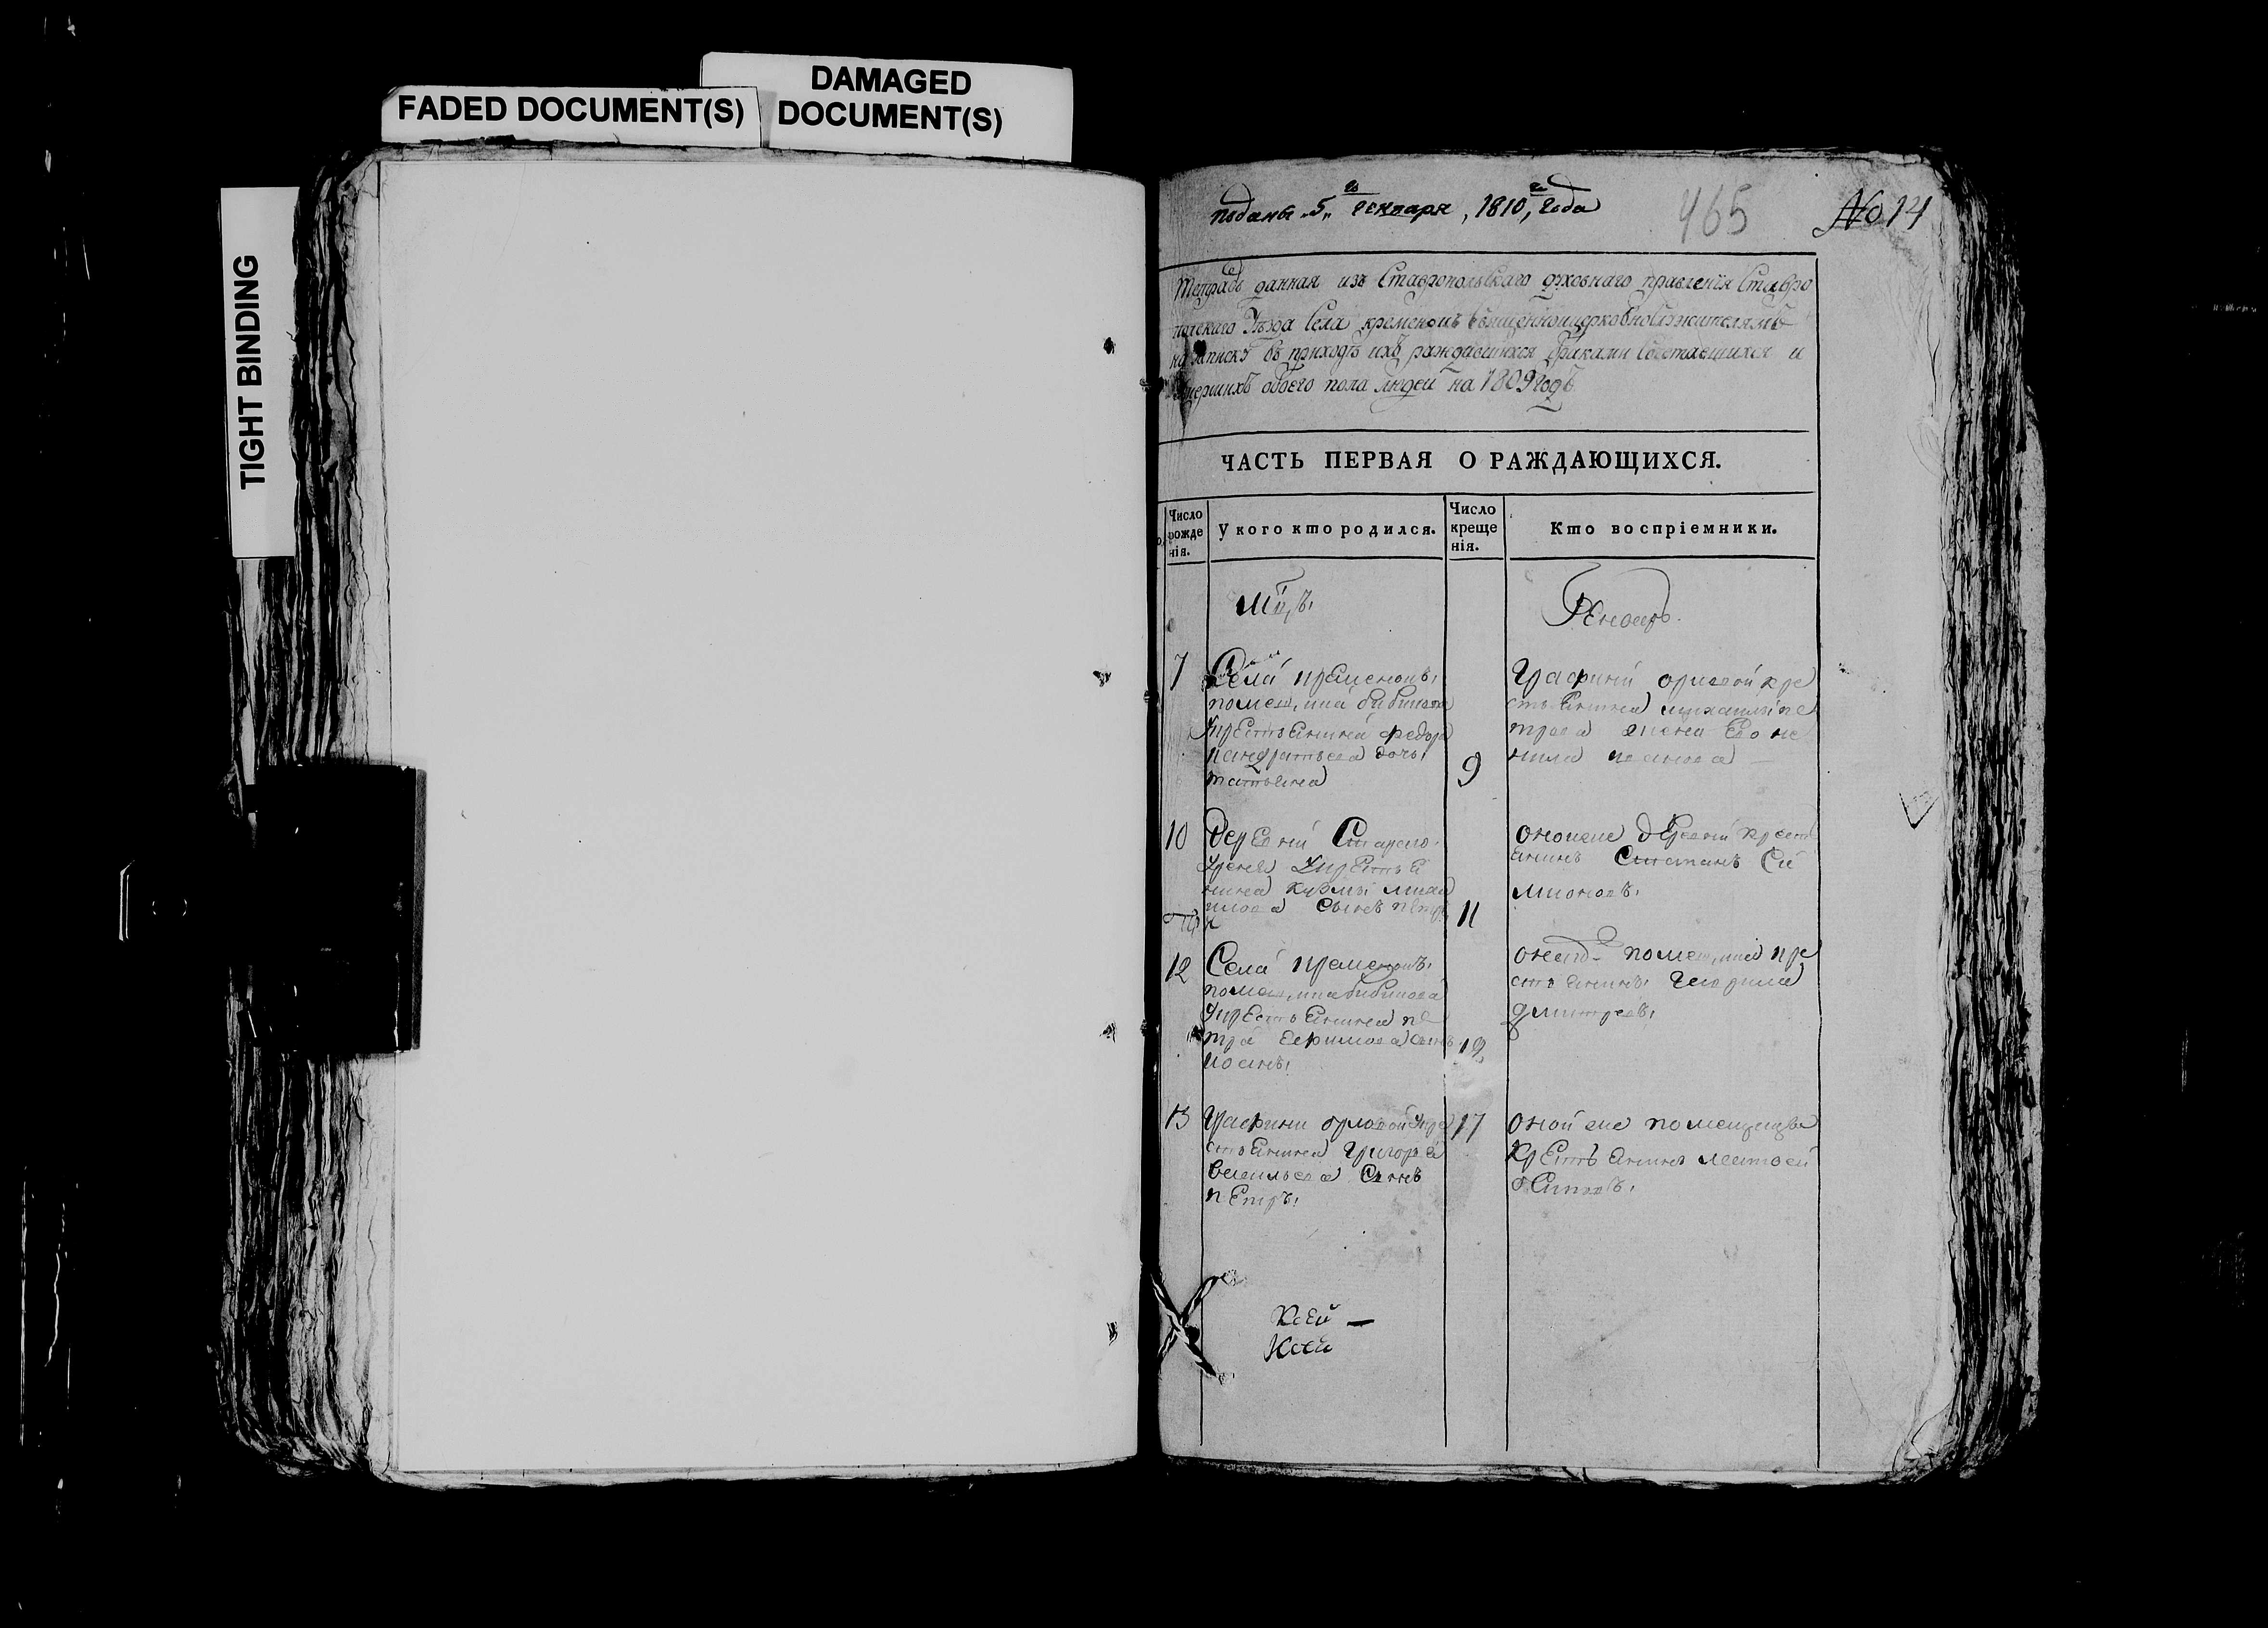 DAMAGED
DOCUMENT(S)
FADED DOCUMENT(S)
TIGHT BINDING
поданы „5„ го генваря, 1810, г года
465
No 14
Тетрадь данная изъ Ставропольскаго духовнаго правленія Ставро
польскаго Уезда Села кременокъ Священноцерковнослужителямъ
на записку въ приходе ихъ раждавшихся браками Сочетавшихся и
умершихъ обоего пола людей на 1809 годъ
ЧАСТЬ ПЕРВАЯ О РАЖДАЮЩИХСЯ.
Число рожде нія.
У кого кто родился.
Число креще нія.
Кто воспріемники.
Мцъ
Генварь.
7
Села кременокъ
помещика бибикова
крестьянина федора
кандратьева дочь
татьяна
9
Графини орловой кре
стьянина михаилы пе
трова жена Ево не
нила иванова
10
деревни
крестья
нина кузмы михаи
лова Сынъ
11
оной же деревни крест
янинъ Степанъ Си
мионовъ
12
Села кременокъ
помещика бибикова
крестьянина пе
тра Ефимова Сынъ
иоанъ
12
онагож помещика кре
стьянинъ Гаврила
дмитреевъ
13
Графини орловой кре
стьянина Григорья
васильева Сынъ
петръ
17
оной же помещицы
крестьянинъ матвей